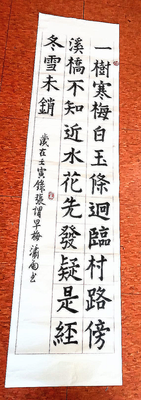 一樹寒梅白玉條迥臨村路傍
溪橋不知近水花先發疑是經
冬雪未銷
歲在壬寅錄張謂早梅 瀟雨書